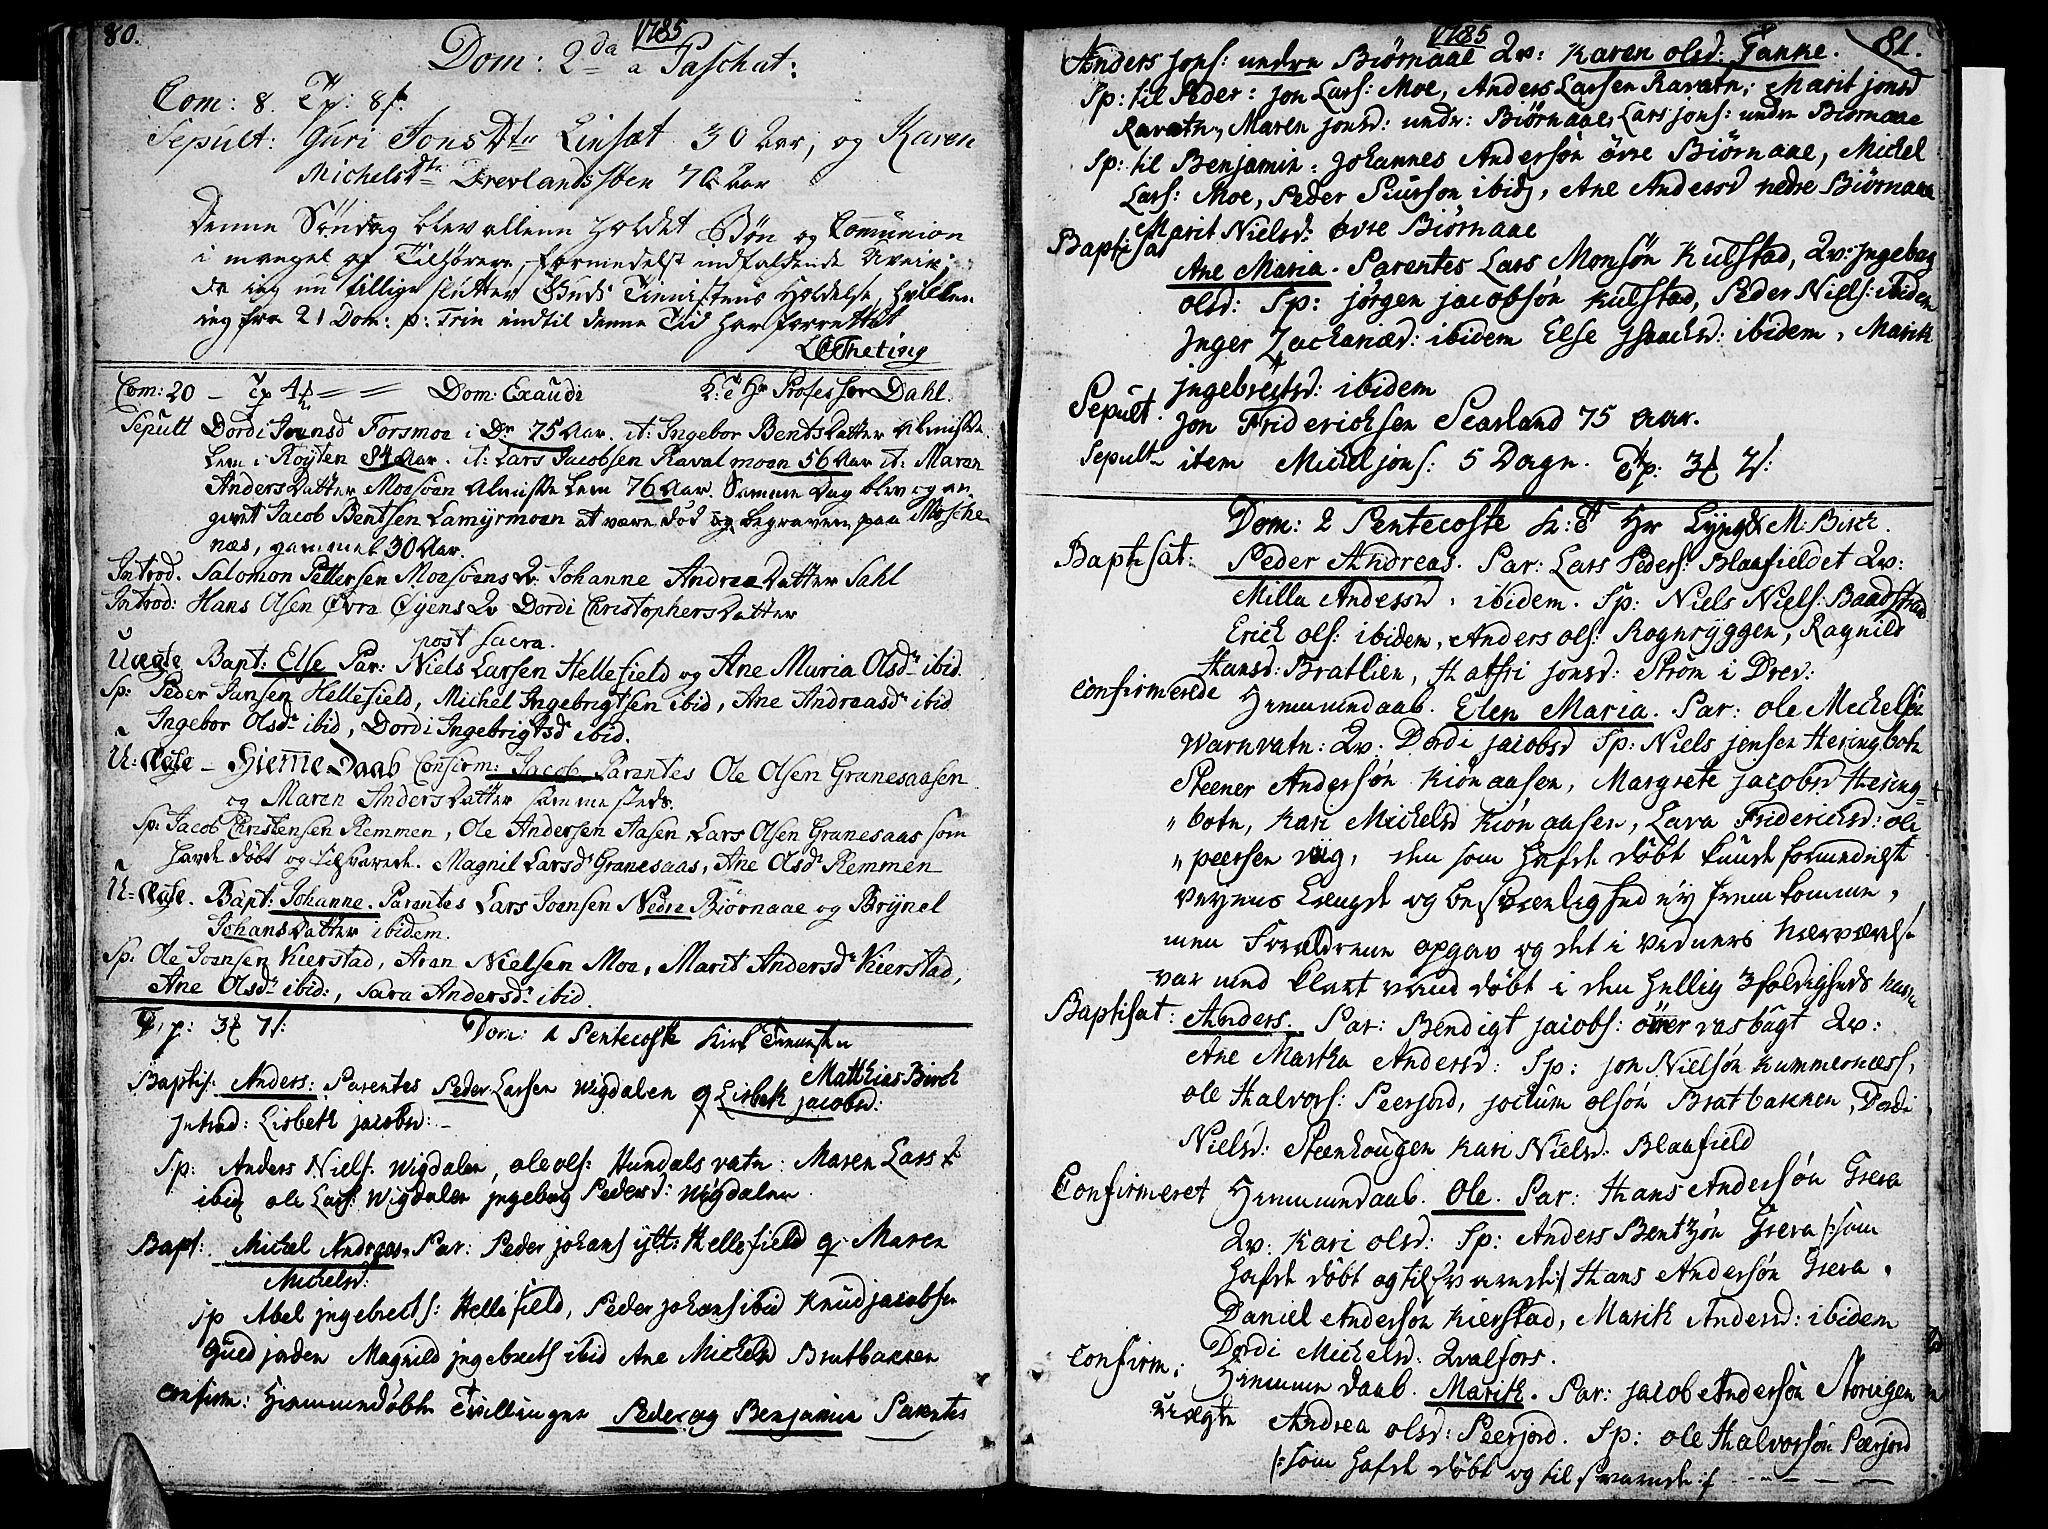 80.
1785
Dom: 2da a Paschat:
Com: 8. Tp: 8 s.
Sepult: Guri JonsDtr Linsæt 30 Aar, og Karen
MichelsDtr Drevlands 70 Aar
Denne Søndag blev allene holdet Bøn og Comunion
i mangel af Tilhørere, formedelst indfaldende
ieg nu tillige slutter Guds Tienistens Holdelse, hvilken
ieg fra 21 Dom: p: Trin indtil denne Tid har forrettet
Com: 20 - Tp 4 Dom: Exaudi K: T Hr Professor Dahl.
Sepult Dordi Joensd Forsmoe i Dr 75 Aar. it: Ingebor BentsDatter Almisse
Lem i Røyten 84 Aar. it: Lars Jacobsen Ravatmoen 56 Aar it: Maren
AndersDatter Moesøen Almisse Lem 76 Aar. Samme Dag blev og an
givet Jacob Bentsen Lamyrmoen at være død og begraven paa Mosche
næs, gammel 30 Aar.
Introd. Salomon Pettersen Moesøens Qv: Johanne AndreaDatter Sahl
Introd: Hans Olsen Øvre Øyens Qv Dordi ChristophersDatter
post sacra.
Uægte Bapt: Else Par: Niels Larsen Hellefield og Ane Maria Olsdr ibid.
Sp: Peder Jansen Hellefield, Michel Ingebrigtsen ibid, Ane Andreasdr ibid
Ingebor Olsdr ibid, Dordi Ingebrigtsd ibid.
U: Ægte - HiemeDaab Confirm: Jacob Parentes Ole Olsen Granesaasen
og Maren AndersDatter sammesteds.
Sp: Jacob Christensen Remmen, Ole Andersen Aasen, Lars Olsen Granesaas som
havde døbt og tilsvarede. Magnil Larsdr Granesaas, Ane Olsdr Remmen
U-Ægte. Bapt: Johanne. Parentes Lars Joensen Nedre Biørnaae og Brynel
JohansDatter ibidem.
Sp: Ole Joensen Kierstad, Aron Nielsen Moe, Marit Andersdr Kierstad,
Ane Olsdr ibid:, Sara Andersdr ibid.
Tp: 3 7 s: Dom: 1 Pentecoste
Matthias Birch
Baptis: Anders: Parentes Peder Larsen Wigdalen og Lisbeth jacobsd:
Introd: Lisbeth jacobsd: -
Sp: Anders Niels: Wigdalen, ole ols: Hundals vatn: Maren Lars d
ibid ole Lars: Wigdalen jngeborg Pedersd: Wigdalen
Bapt: Michel Andreas. Par: Peder johans ytt: Hellefield og Maren
Michelsd:
Sp Abel jngebrects: Hellefield, Peder johans ibid Knud jacobsen
Quedjorden Magnild jngebrects ibid Ane Michelsd Bratbakken
Confirm: Hiemmedøbte Tvillinger Peder og Benjamin Parentes
1785
81.
Anders jons: undre Biørnaae Qv: Karen olsd: Fanke.
Sp: til Peder: jon Lars: Moe, Anders Larsen Ravatn, Marit jonsd
Ravatn, Maren jonsd: undr: Biørnaae, Lars jons: undre Biørnaae
Sp: til Benjamin: johannes Andersøn övre Biørnaae, Michel
Lars: Moe, Peder Siursøn ibid, Ane Andersd nedre Biørnaae
Marit Nielsd: övre Biørnaae
Baptisat Ane Maria. Parentes Lars Monsøn Kulstad, Qv: jngebor
olsd: Sp: jörgen jacobsøn Kulstad, Peder Niels: ibidem
Jnger Zachariæd: ibidem Else jsaachsd: ibidem, Marith
jngebrectsd: ibidem
Sepult. jon Friderichsen Searland 75 Aar.
Sepult item Michel jons: 5 Dage. Tp: 3 7 s:
Dom: 2 Pentecoste K: T Hr M: Birch.
Baptisat: Peder Andreas. Par: Lars Peders: Blaafieldet Qv:
Milla Andersd, ibidem. Sp: Niels Niels: Baadstrand
Erich ols: ibidem, Anders ols: Rognryggen, Ragnild
Hansd: Bratlien, Hatfri jonsd: Strøm i Drev:
Confirmerede Hiemmedaab. Elen Maria. Par: ole Michelsen
Warnvatn: Qv. Dordi jacobsd Sp: Niels jensen Heringbotn
Steener Andersøn Kiönaasen, Margrete jacobsd Hering-
„botn, Kari Michelsd Kiönaasen, Lava Friderichsd: ole
„peersen viig, den som hafde döbt kunde formedelst
veyens Længde og besværlighed ey fremkomme,
men Forældrene opgav og det i vidners nærværelse
var med klart vand döbt i den hellig 3foldigheds navn
Baptisat: Anders. Par: Bendigt jacobs: övervasbugt Qv:
Ane Martha Andersd: Sp: jon Nielsøn Kummernæss,
ole Halvors: Peerjord, jochum olsøn Bratbakken, Dordi
Nielsd: Steenhougen Kari Nielsd. Blaafield
Confirmeret Hiemmedaab. Ole. Par: Hans Andersøn Græra
Qv: Kari olsd: Sp: Anders Bentzøn Græra /:som
hafde döbt og tilsvarede:/ Hans Andersøn Græra,
Daniel Andersøn Kierstad, Marith Andersd: ibidem
Dordi Michelsd: Qvalfors.
Confirm: Hiemmedaab. Marith. Par: jacob Andersøn Storiegen
uægte Andrea olsd: Peerjord. Sp: ole Halvorsøn Peerjord
/:som hafde döbt og tilsvarede:/